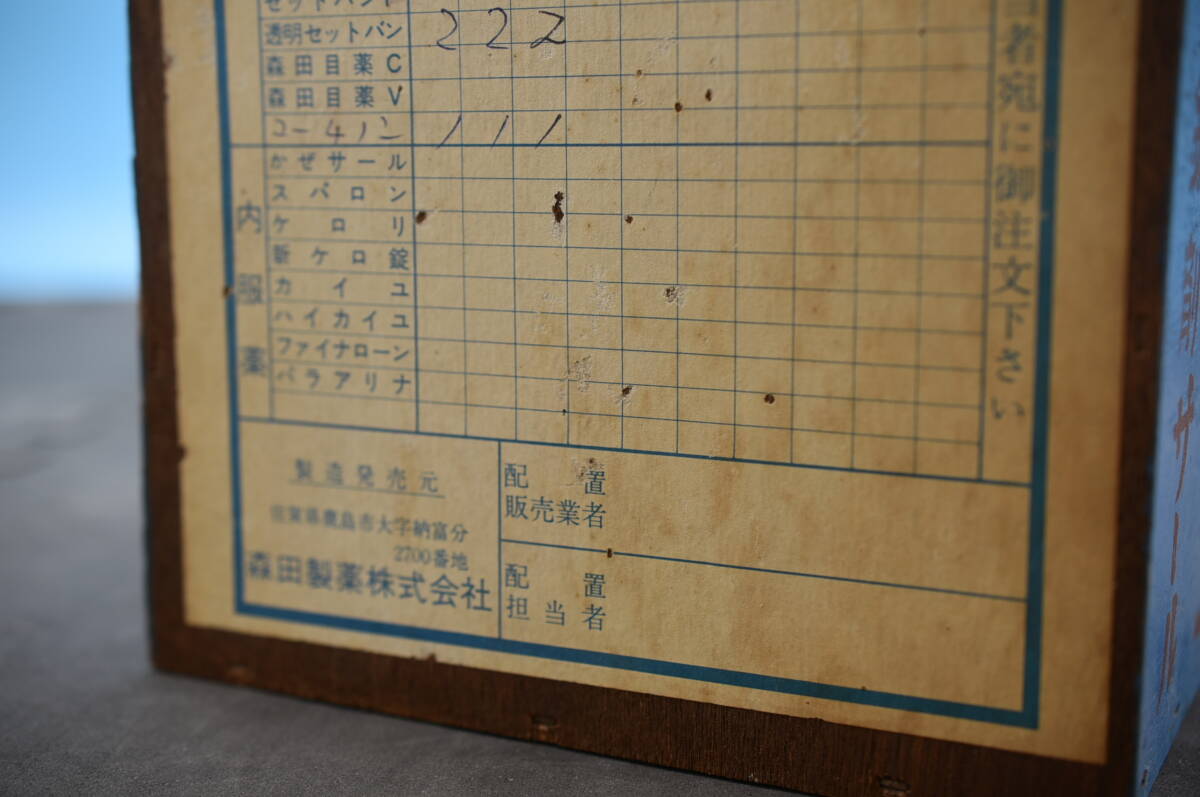 セットバンド
透明セットバン 2 2 2
森田目薬C
森田目薬V
1 1 1
内服薬
かぜサール
スパロン
ケロリ
新ケロ錠
カイユ
ハイカイユ
ファイナローン
パラアリナ
者宛に御注文下さい
製造発売元
佐賀県鹿島市大字納富分
2700番地
森田製薬株式会社
配置
販売業者
配置
担当者
サール